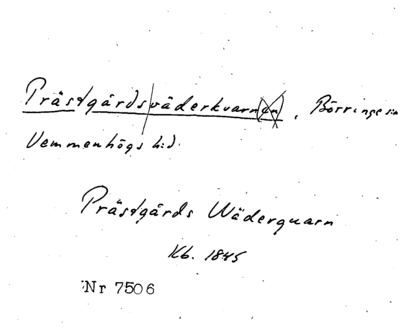 Prästgårds|väderkvarn(en), Börringe sn
Vemmenhögs hd.
Prästgårds Wäderquarn
Kb. 1845
Nr 7506